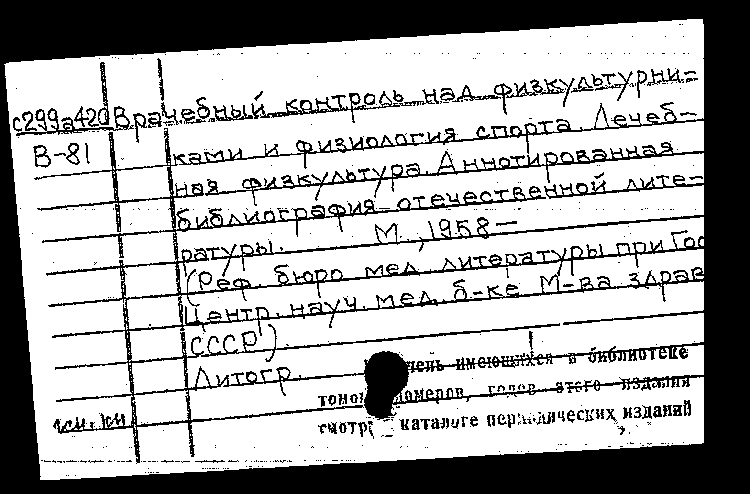 с299а420 Врачебный контроль над физкультурни-
В-81 ками и физиология спорта. Лечеб-
ная физкультура. Аннотированная
библиография отечественной лите-
ратуры. М., 1958—
(Реф. бюро мед. литературы при Гос
Центр. науч. мед. б-ке М-ва здрав
СССР).
Литогр.
имеющихся в библиотеке
номеров, годов этого издания
каталоге периодических изданий